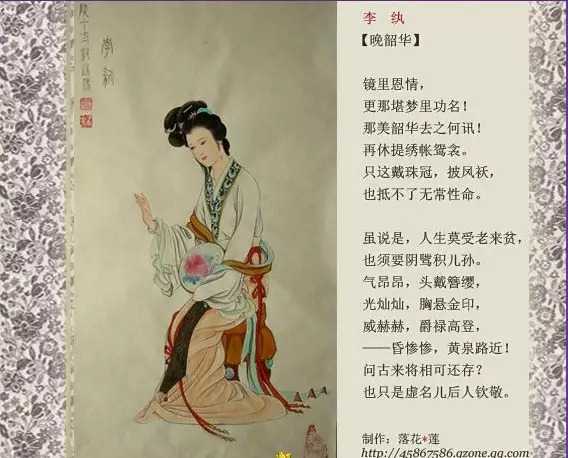 李 纨
【晚韶华】
镜里恩情，
更那堪梦里功名！
那美韶华去之何讯！
再休提绣帐鸳衾。
只这戴珠冠，披凤袄，
也抵不了无常性命。
虽说是，人生莫受老来贫，
也须要阴骘积儿孙。
气昂昂，头戴簪缨，
光灿灿，胸悬金印，
威赫赫，爵禄高登，
——昏惨惨，黄泉路近！
问古来将相可还存？
也只是虚名儿后人钦敬。
制作：落花*莲
http://45867586.qzone.qq.com